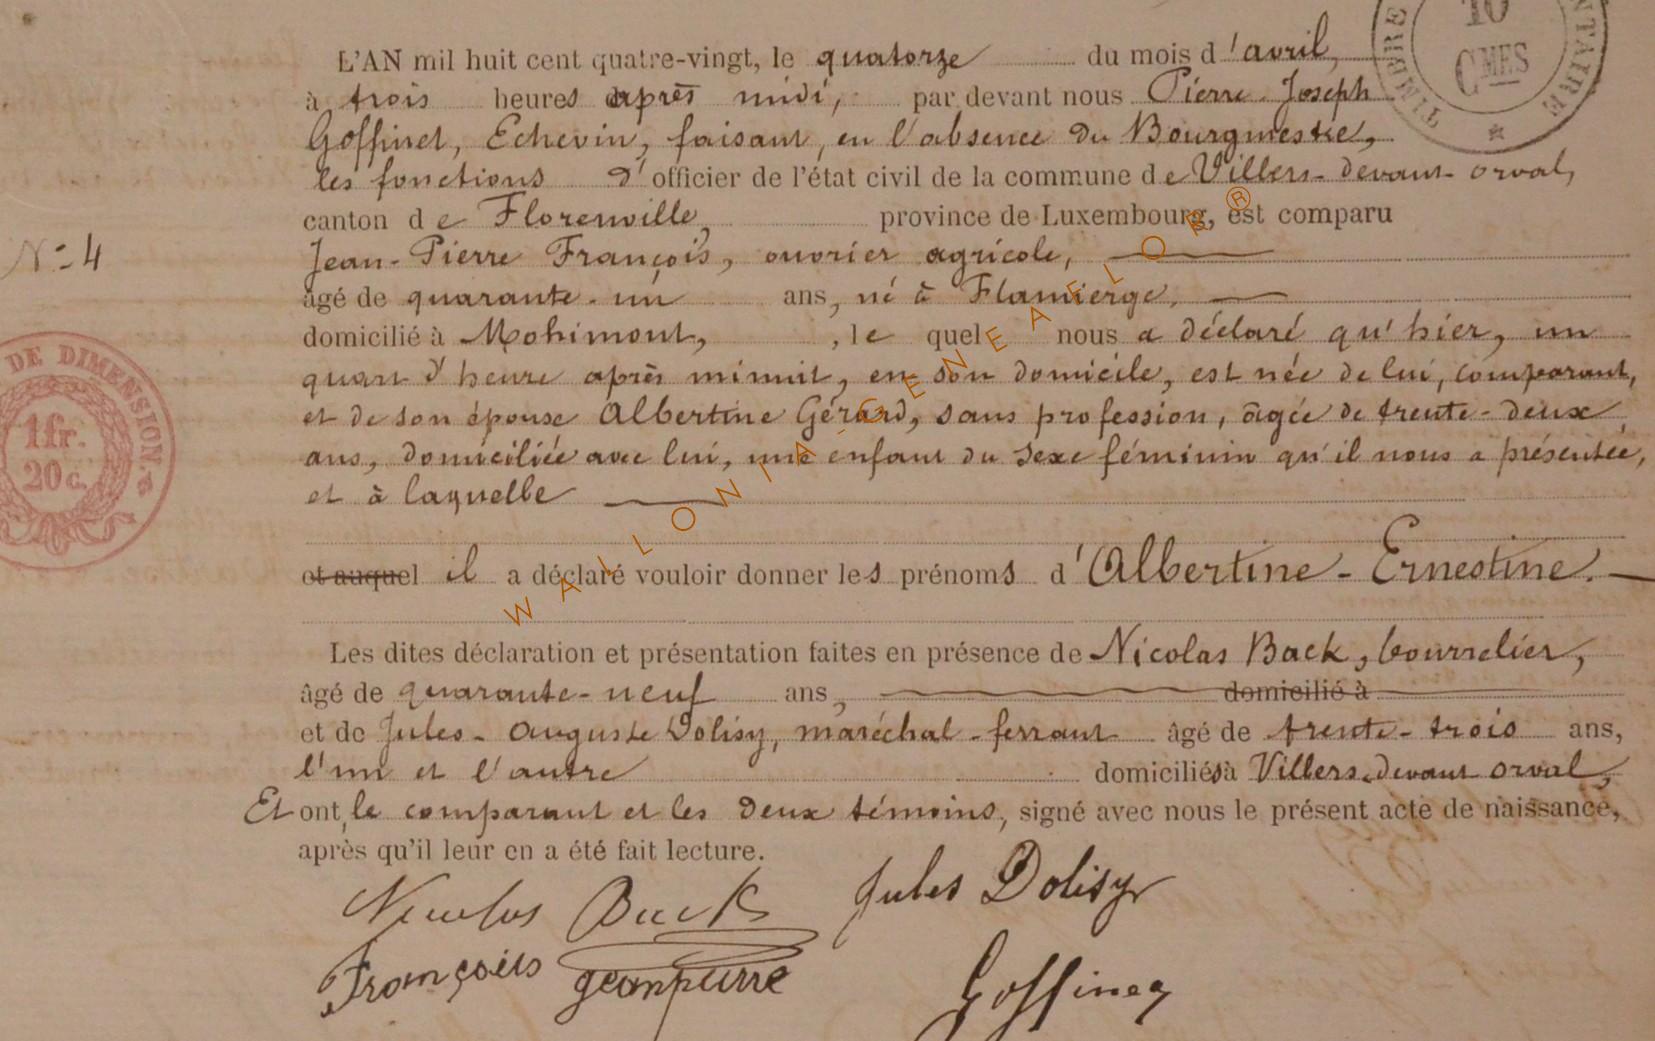 L'AN mil huit cent quatre-vingt, le quatorze du mois d'avril,
à trois heures après midi, par devant nous Pierre Joseph
Goffinet, Echevin, faisant, en l'absence du Bourgmestre,
les fonctions d'officier de l'état civil de la commune de Villers-devant-orval,
canton de Florenville, province de Luxembourg, est comparu
Jean-Pierre François, ouvrier agricole,
N° 4
âgé de quarante-un ans, né à Flamierge,
domicilié à Mohimont, , le quel nous a déclaré qu'hier, un
quart d'heure après minuit, en son domicile, est née de lui, comparant,
et de son épouse Albertine Gérard, sans profession, âgée de trente-deux
ans, domiciliée avec lui, une enfant du sexe féminin qu'il nous a présentée,
et à laquelle
et auquel il a déclaré vouloir donner les prénoms d'Albertine-Ernestine.
Les dites déclaration et présentation faites en présence de Nicolas Back, bourrelier,
âgé de quarante-neuf ans, domicilié à
et de Jules-Auguste Dolisy, maréchal-ferrant âgé de trente-trois ans,
l'un et l'autre domiciliés à Villers-devant orval,
Et ont, le comparant et les deux témoins, signé avec nous le présent acte de naissance,
après qu'il leur en a été fait lecture.
Nicolas Back Jules Dolisy
François jeanpierre Goffinet
TIMBRE
10
CMES
DE DIMENSION.
1fr.
20c.
WALLONIA-GENEAFLOR®